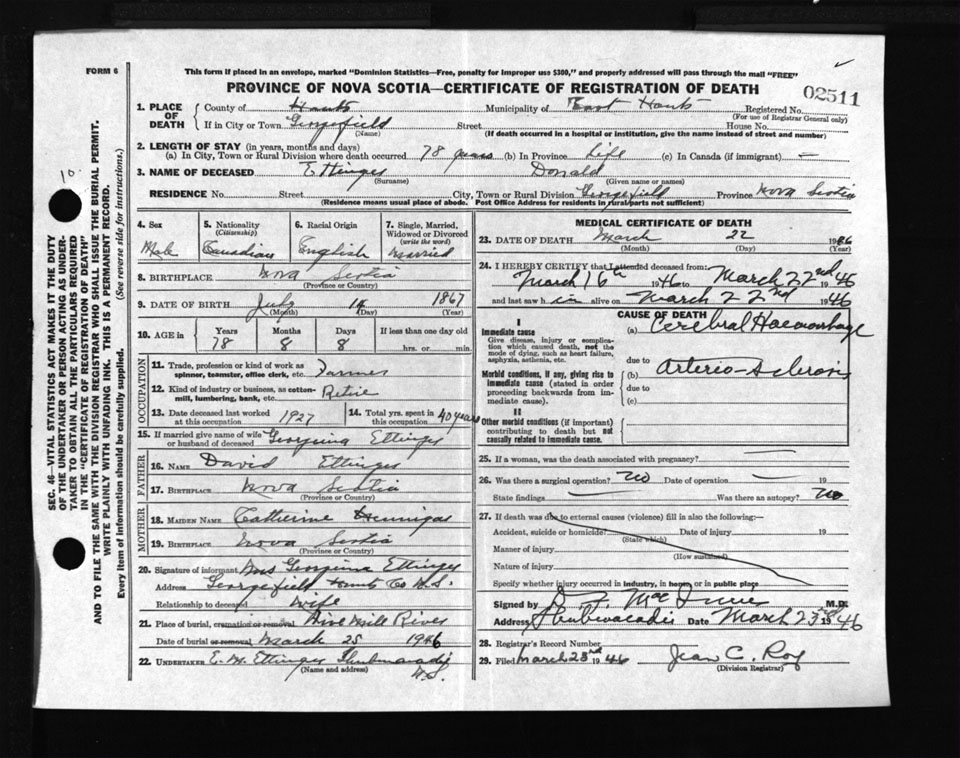 FORM 6
This form if placed in an envelope, marked "Dominion Statistics—Free, penalty for improper use $300," and properly addressed will pass through the mail "FREE"
PROVINCE OF NOVA SCOTIA—CERTIFICATE OF REGISTRATION OF DEATH
02511
1. PLACE OF DEATH
County of Hants Municipality of East Hants Registered No.
(For use of Registrar General only)
If in City or Town Georgefield Street House No.
(Name) (If death occurred in a hospital or institution, give the name instead of street and number)
2. LENGTH OF STAY (in years, months and days)
(a) In City, Town or Rural Division where death occurred 78 years (b) In Province Life (c) In Canada (if immigrant) —
3. NAME OF DECEASED Ettinger Donald
(Surname) (Given name or names)
RESIDENCE No. Street City, Town or Rural Division Georgefield Province Nova Scotia
(Residence means usual place of abode. Post Office Address for residents in rural parts not sufficient)
4. Sex Male
5. Nationality (Citizenship) Canadian
6. Racial Origin English
7. Single, Married, Widowed or Divorced (write the word) Married
8. BIRTHPLACE Nova Scotia
(Province or Country)
9. DATE OF BIRTH July 14 1867
(Month) (Day) (Year)
10. AGE in Years Months Days If less than one day old
78 8 8 hrs. or min.
OCCUPATION
11. Trade, profession or kind of work as spinner, teamster, office clerk, etc. Farmer
12. Kind of industry or business, as cotton-mill, lumbering, bank, etc. Retire
13. Date deceased last worked at this occupation 1927
14. Total yrs. spent in this occupation 40 years
15. If married give name of wife or husband of deceased Georgina Ettinger
FATHER
16. NAME David Ettinger
17. BIRTHPLACE Nova Scotia
(Province or Country)
MOTHER
18. MAIDEN NAME Catherine Hennigar
19. BIRTHPLACE Nova Scotia
(Province or Country)
20. Signature of informant Mrs Georgina Ettinger
Address Georgefield Hants Co N.S.
Relationship to deceased wife
21. Place of burial, cremation or removal Nine Mile River
Date of burial or removal March 25 1946
22. UNDERTAKER E. M. Ettinger Shubenacadie
(Name and address) N.S.
MEDICAL CERTIFICATE OF DEATH
23. DATE OF DEATH March 22 1946
(Month) (Day) (Year)
24. I HEREBY CERTIFY that I attended deceased from:
March 16th 1946 to March 22nd 46
and last saw him alive on March 22nd 1946
CAUSE OF DEATH
I
Immediate cause
Give disease, injury or complication which caused death, not the mode of dying, such as heart failure, asphyxia, asthenia, etc.
(a) Cerebral Haemorrhage
due to
Morbid conditions, if any, giving rise to immediate cause (stated in order proceeding backwards from immediate cause).
(b) Arterio-Sclerosis
due to
(c)
II
Other morbid conditions (if important) contributing to death but not causally related to immediate cause.
25. If a woman, was the death associated with pregnancy?
26. Was there a surgical operation? No Date of operation 19
State findings Was there an autopsy? No
27. If death was due to external causes (violence) fill in also the following:—
Accident, suicide or homicide? Date of injury 19
(State which)
Manner of injury
(How sustained)
Nature of injury
Specify whether injury occurred in industry, in home, or in public place
Signed by Mac Innes M.D.
Address Shubenacadie Date March 23rd 1946
28. Registrar's Record Number
29. Filed March 25rd 1946 Jean C. Roy
(Division Registrar)
10.
SEC. 46—VITAL STATISTICS ACT MAKES IT THE DUTY
OF THE UNDERTAKER OR PERSON ACTING AS UNDER-
TAKER TO OBTAIN ALL THE PARTICULARS REQUIRED
IN THE "CERTIFICATE OF REGISTRATION OF DEATH"
AND TO FILE THE SAME WITH THE DIVISION REGISTRAR WHO SHALL ISSUE THE BURIAL PERMIT.
WRITE PLAINLY WITH UNFADING INK. THIS IS A PERMANENT RECORD.
Every item of information should be carefully supplied. (See reverse side for instructions.)